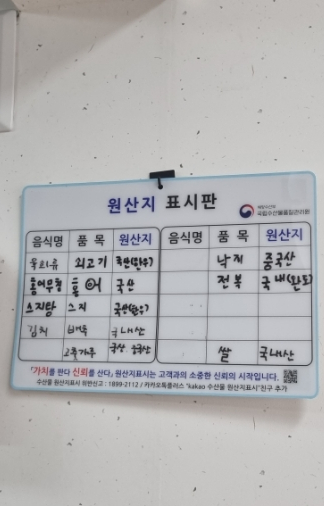 원산지 표시판
해양수산부
국립수산물품질관리원
음식명 품 목 원산지 음식명 품 목 원산지
쇠고기 국산(한우) 낙 지 중국산
홍어 국산 전 복 국내(완도)
스지탕 스지 국산(한우)
김치 배추 국내산
고춧가루 국산 중국산 쌀 국내산
「가치를 판다 신뢰를 산다」 원산지표시는 고객과의 소중한 신뢰의 시작입니다.
수산물 원산지표시 위반신고 : 1899-2112 / 카카오톡플러스 "kakao 수산물 원산지표시"친구 추가